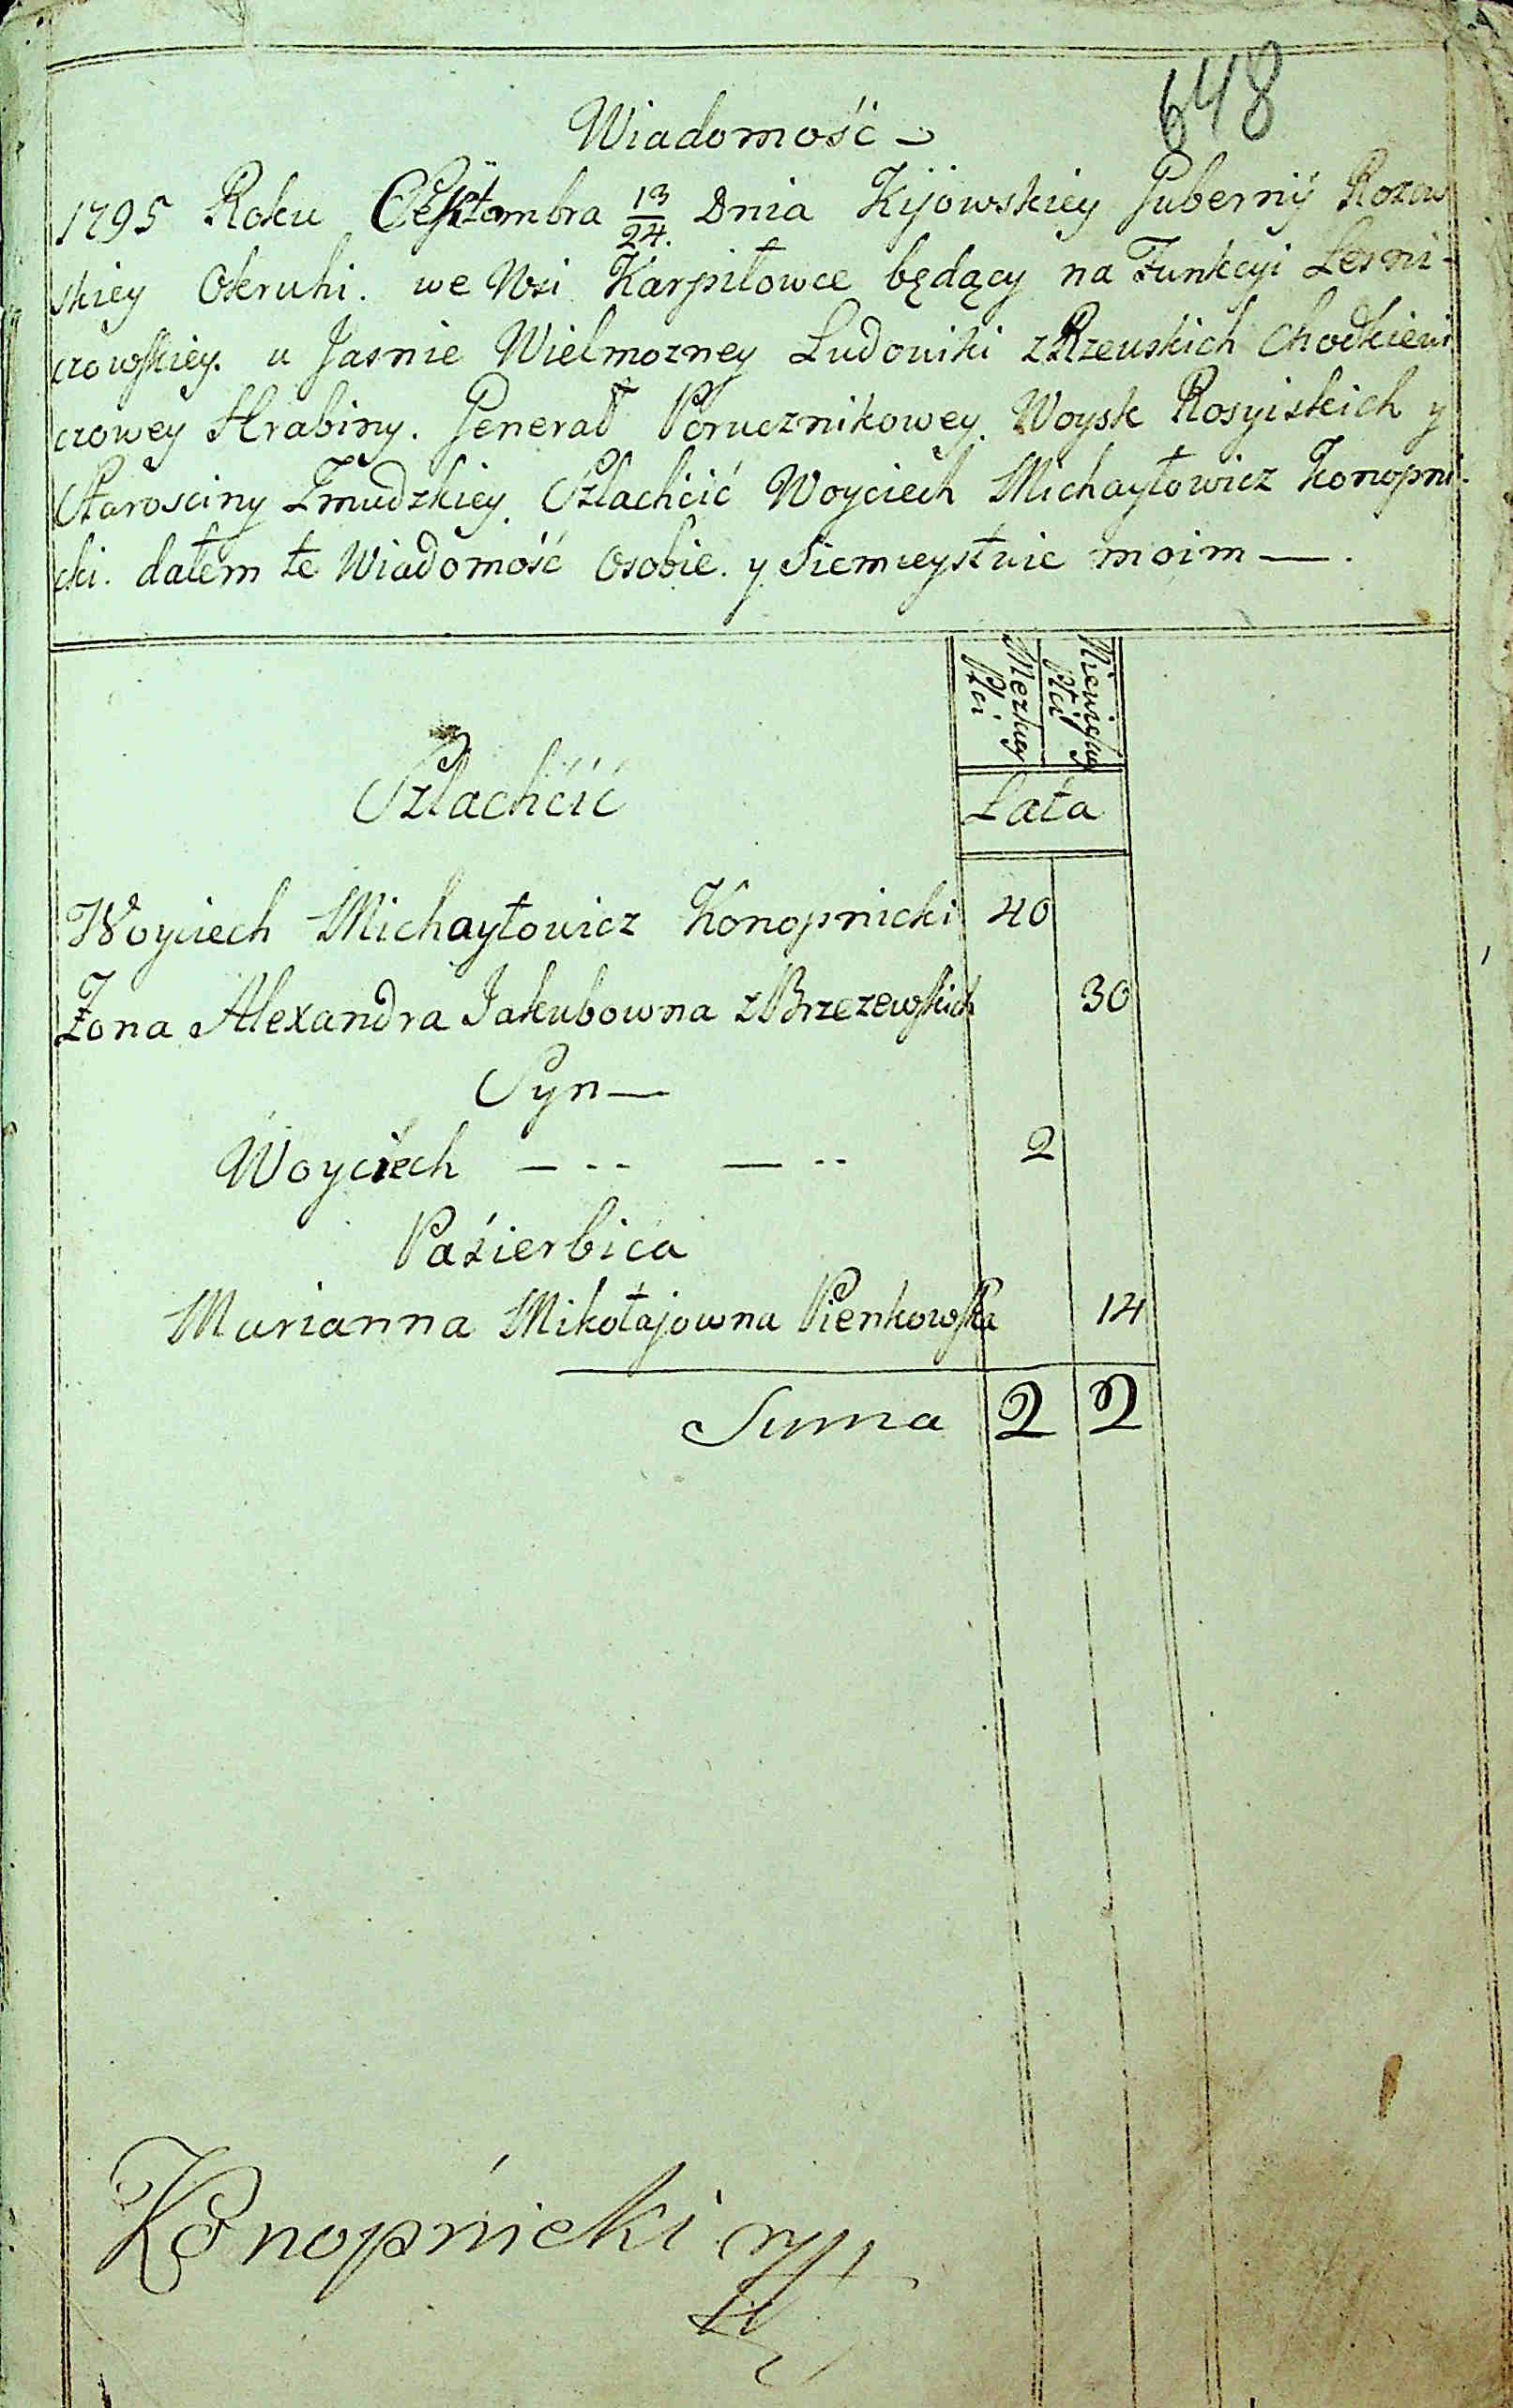 648
Wiadomość
1795 Roku Septembra 13/24. Dnia Kijowskiey Guberniÿ Rozew
skiey Okruhi. we Wsi Karpiłowce będący na Funkcyi Lesni-
czowskiey. u Jasnie Wielmozney Ludowiki z Rzewuskich Chodkiewi
czowey Hrabiny. Generał Porucznikowey. Woysk Rosyiskich y
Starosciny Zmudzkiey. Szlachcić Woyciech Michayłowicz Konopni-
cki. dałem te Wiadomość Osobie. y Siemieystwie moim —.
Mezkiey Płci
Niewieskiey Płci
Szlachćić
Lata
Woyciech Michayłowicz Konopnicki 40
Żona Alexandra Jakubowna z Brzezewskich 30
Syn —
Woyciech — -- — -- 2
Paźierbica
Marianna Mikołajowna Pienkowska 14
Suma 2 2
Konopnicki